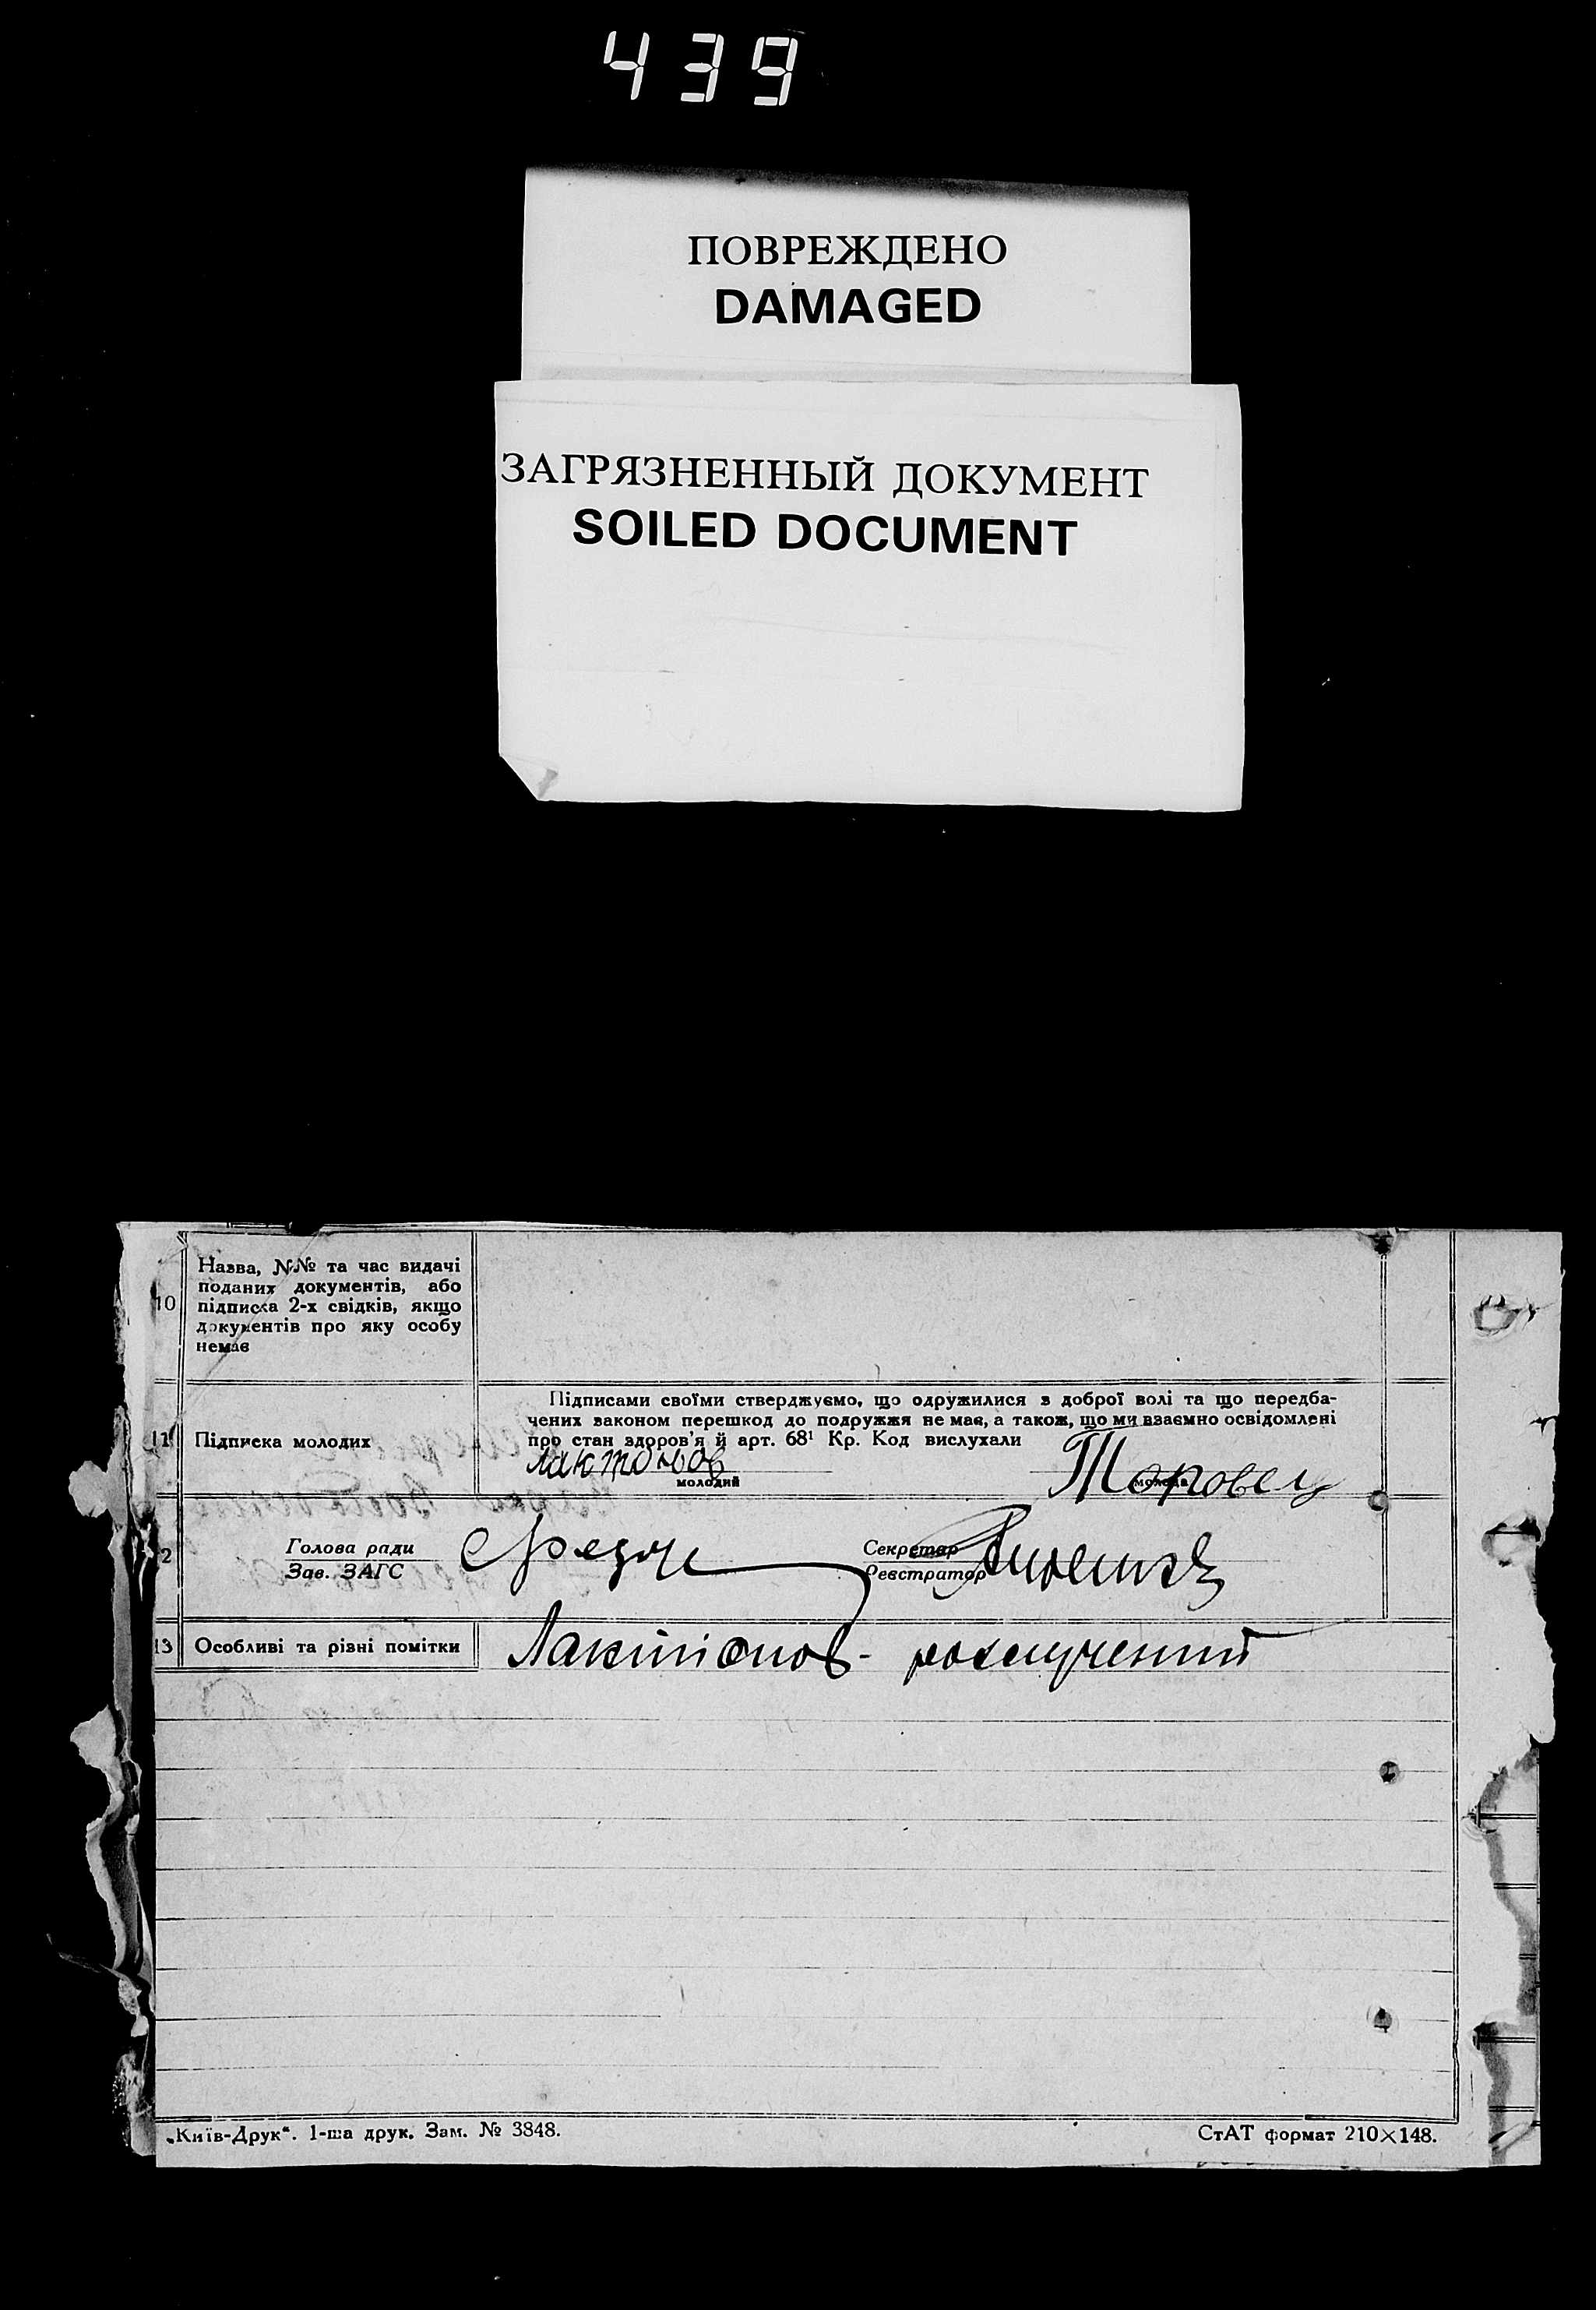 439
ПОВРЕЖДЕНО
DAMAGED
ЗАГРЯЗНЕННЫЙ ДОКУМЕНТ
SOILED DOCUMENT
10 Назва, N№ та час видачі
поданих документів, або
підписка 2-х свідків, якщо
документів про яку особу
немає
Підписами своїми стверджуємо, що одружилися з доброї волі та що передба-
чених законом перешкод до подружжя не має, а також, що ми взаємно освідомлені
11 Підписка молодих
про стан здоров'я й арт. 68¹ Кр. Код вислухали
молодий
молода
Торовец
2
Голова ради
Зав. ЗАГС
Секретар
Реєстратор
13 Особливі та різні помітки
Лактіонов - розлучений
„Київ-Друк“. 1-ша друк. Зам. № 3848.
СтАТ формат 210×148.